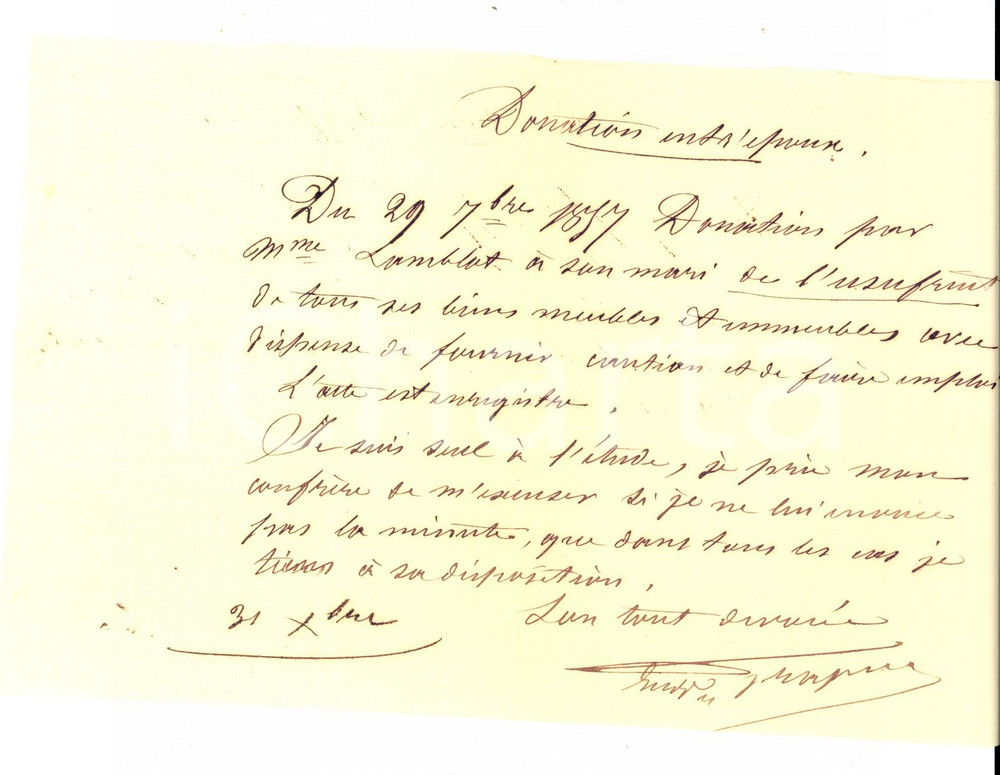 Donation entr'epoux.
Du 29 7bre 1857 Donation par
Mme Lamblot à son mari de l'usufruit
de tous ses biens meubles et immeubles avec
dispense de fournir caution et de faire emploi
L'acte est enregistré.
Je suis seul à l'étude, je prie mon
confrère de m'excuser si je ne lui envoie
pas la minute, que dans tous les cas je
tiens à sa disposition.
Son tout dévoué
31 Xbre